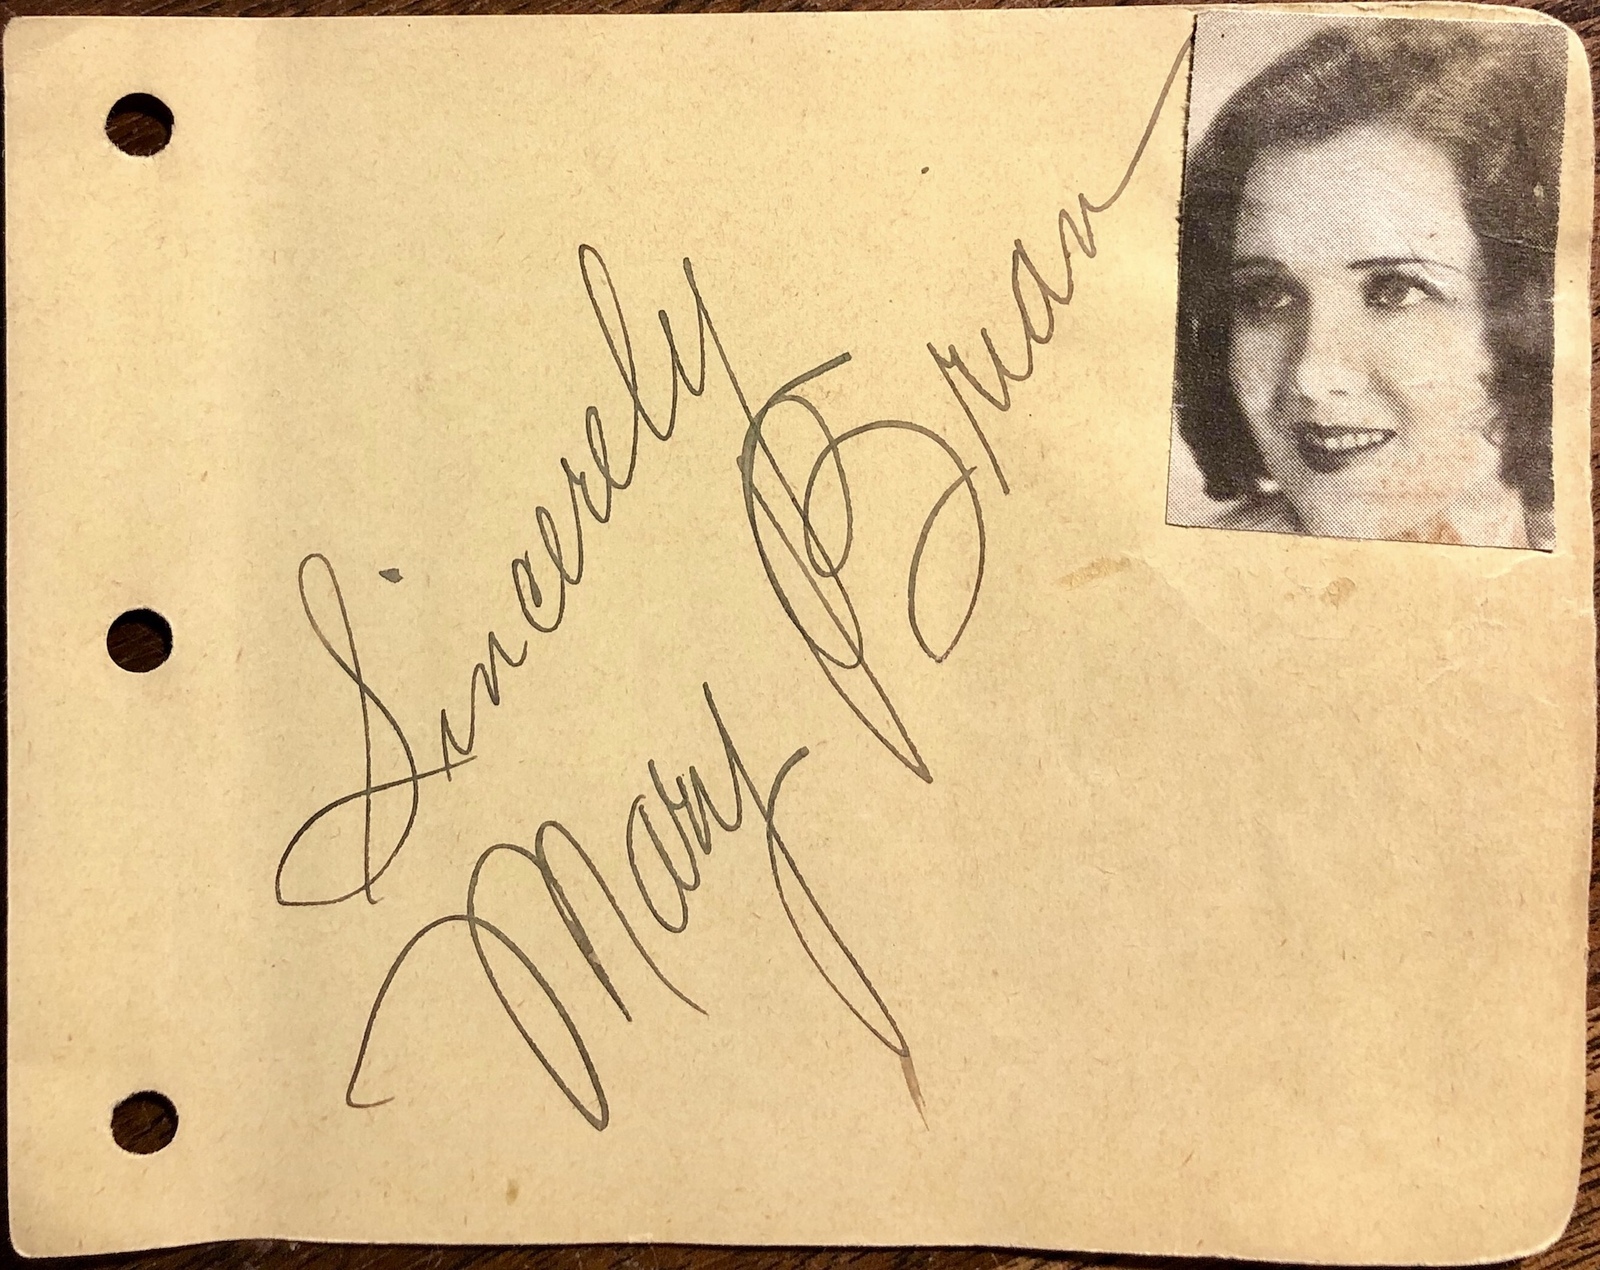 Sincerely
Mary Brian